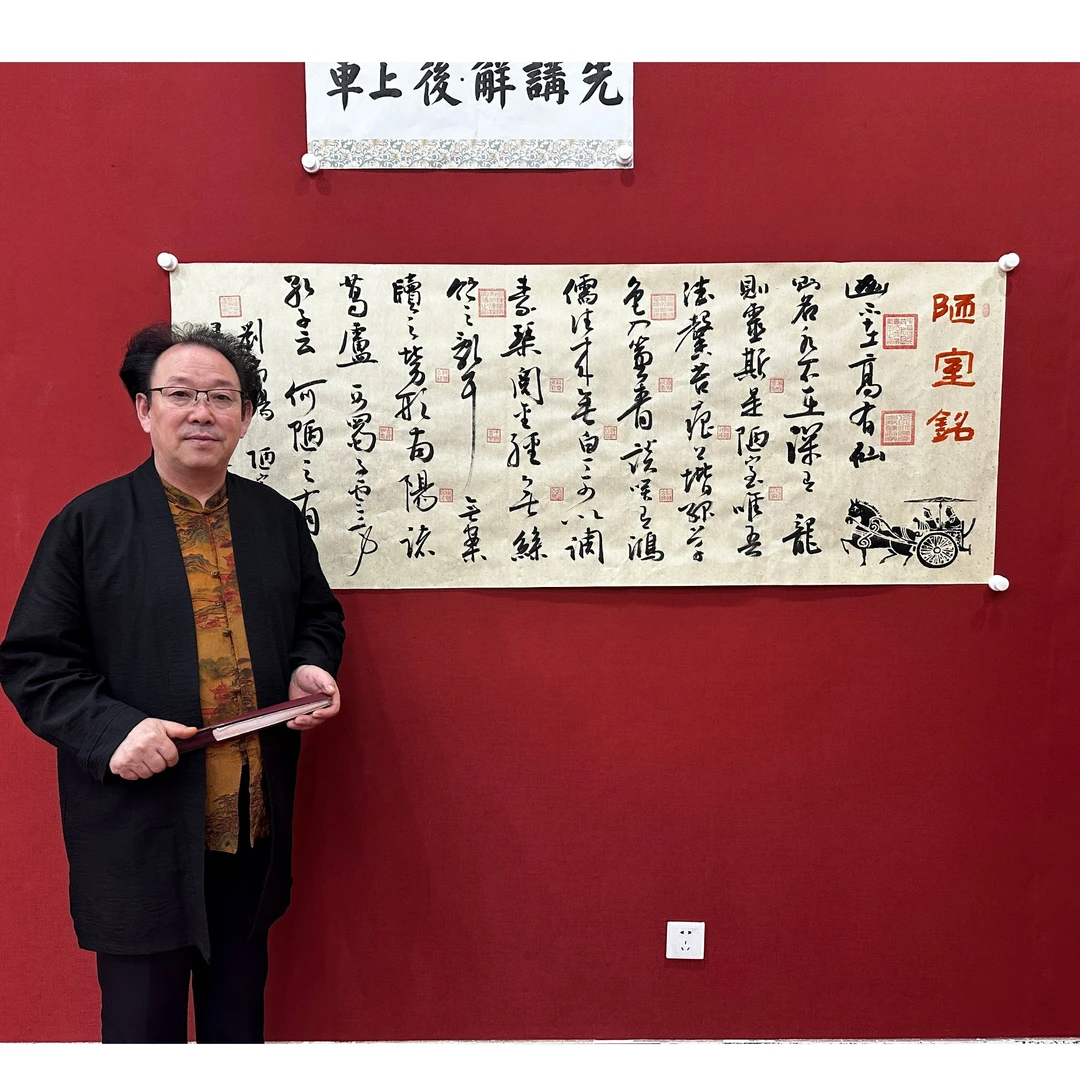 先講解·後上車
陋室銘
山不在高有仙
則名水不在深有龍
則靈斯是陋室唯吾
德馨苔痕上堦綠草
色入簾青談咲有鴻
儒往来無白丁可以調
素琴閱金經無絲
竹之亂耳無案
牘之勞形南陽諸
葛廬西蜀子雲亭
孔子云何陋之有
劉禹錫陋室